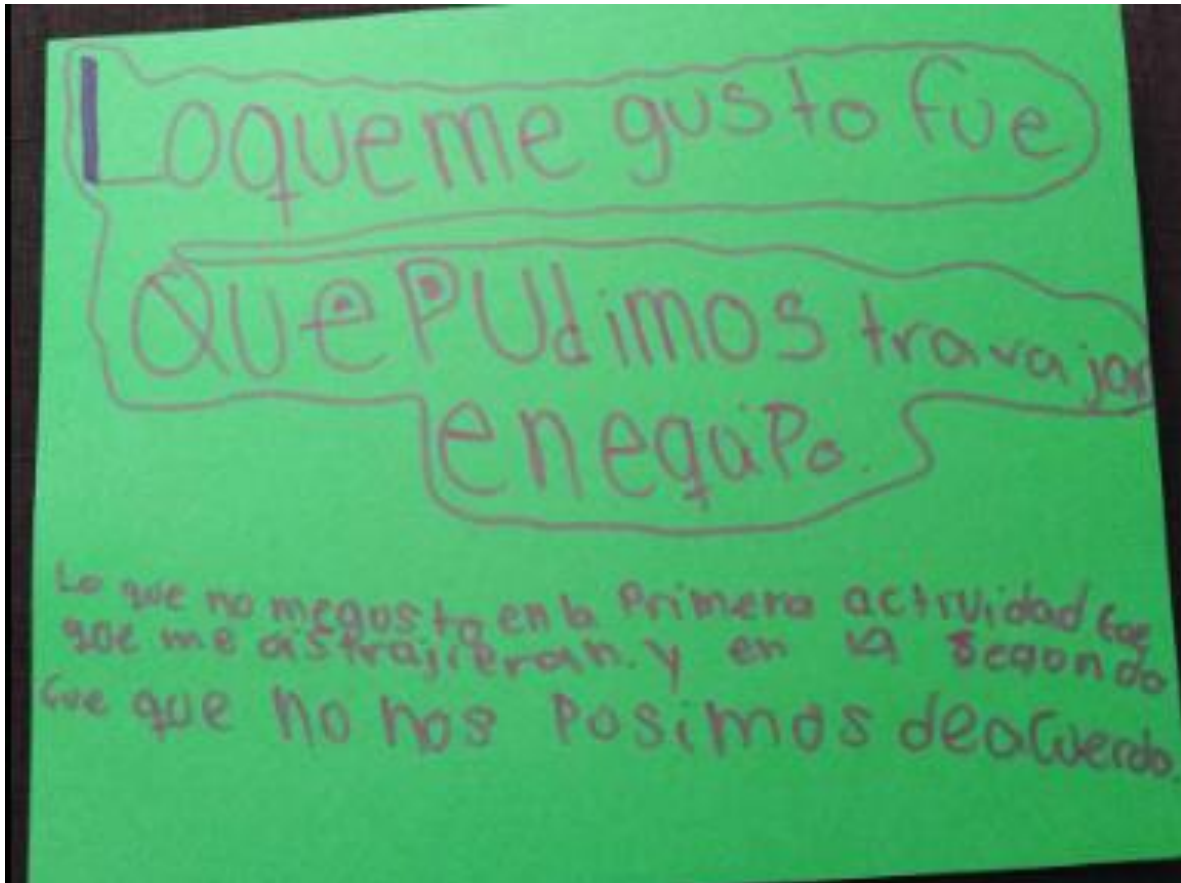 Loqueme gusto fue
QuePUdimos travajar
enequiPo.
Lo que no megusto en la Primera actividad fue
que me distrajieran. y en la Segundo
fue que no nos Posimos deacuerdo.